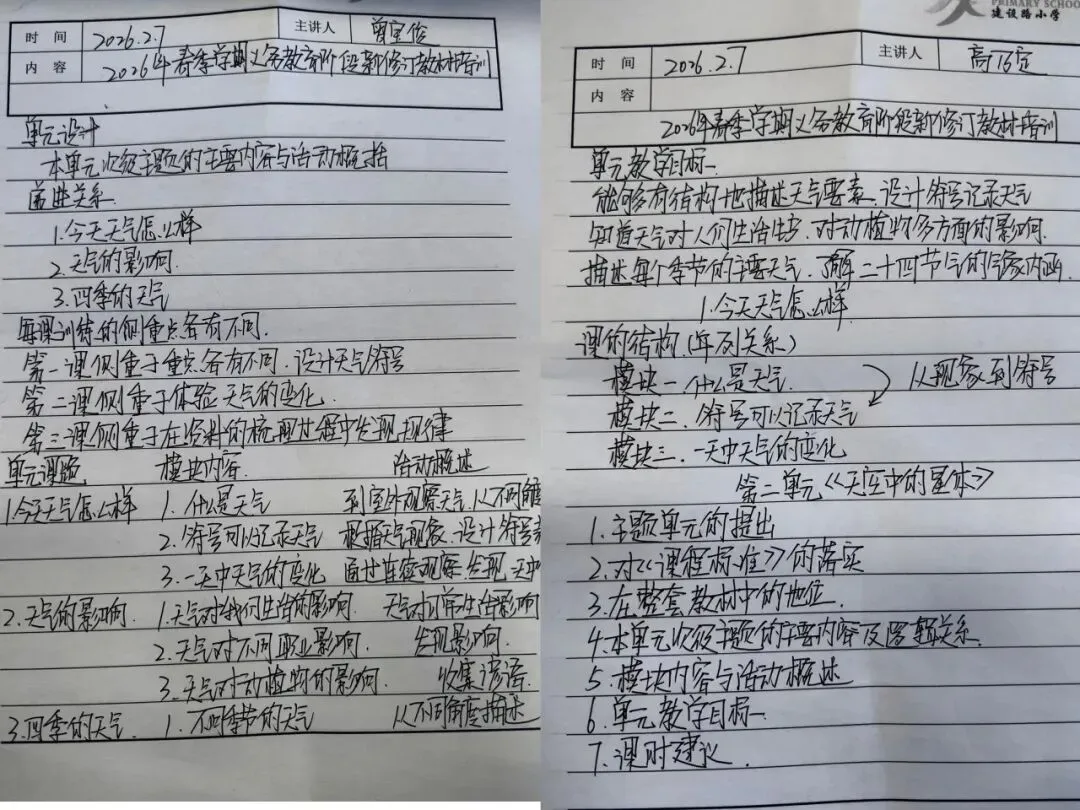 时 间 2026.2.7 主讲人 曾宝俊
内 容 2026年春季学期义务教育阶段新修订教材培训
单元设计
本单元次级主题的主要内容与活动概括
递进关系
1.今天天气怎么样
2.天气的影响.
3.四季的天气
每课训练的侧重点各有不同.
第一课侧重于重点各有不同.设计天气符号
第二课侧重于体验天气的变化.
第三课侧重于在资料的梳理过程中发现规律
单元课题 模块内容. 活动概述
1.今天天气怎么样 1.什么是天气 到室外观察天气,从不同角度
2.符号可以记录天气 根据天气现象.设计符号表
3.一天中天气的变化 通过连续观察.发现一天中
2.天气的影响. 1.天气对我们生活的影响. 天气对日常生活影响
2.天气对不同职业影响. 发现影响.
3.天气对动植物的影响. 收集谚语.
3.四季的天气. 1.不同季节的天气 从不同角度描述
PRIMARY SCHOO
建设路小学
时 间 2026.2.7 主讲人
内 容
2026年春季学期义务教育阶段新修订教材培训
单元教学目标.
能够有结构地描述天气要素.设计符号记录天气
知道天气对人们生活生产.对动植物多方面的影响.
描述每个季节的主要天气.了解二十四节气的气象内涵.
1.今天天气怎么样.
课的结构.(并列关系)
模块一.什么是天气. 从现象到符号
模块二.符号可以记录天气
模块三.一天中天气的变化
第二单元《天空中的星体》
1.主题单元的提出
2.对《课程标准》的落实
3.在整套教材中的地位.
4.本单元次级主题的主要内容及逻辑关系.
5.模块内容与活动概述
6.单元教学目标.
7.课时建议.